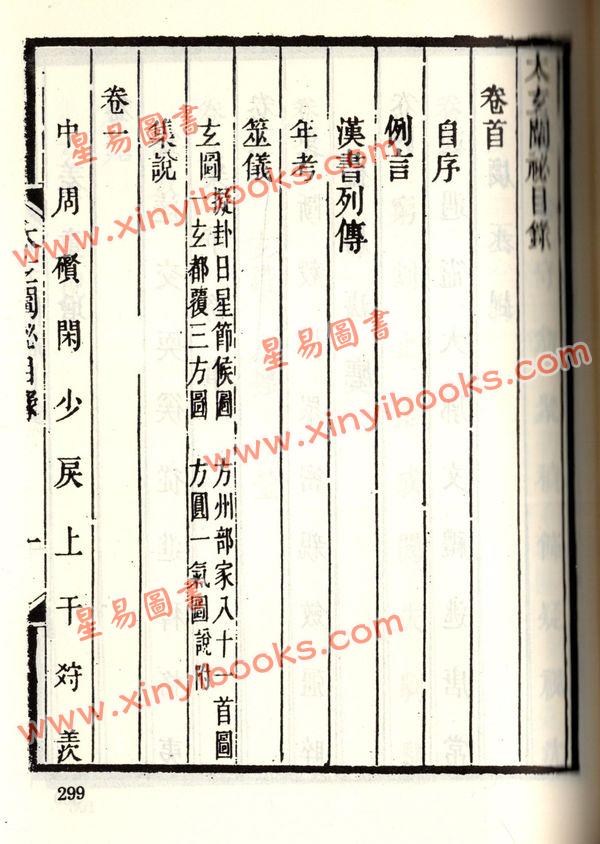 太玄闡祕目錄
卷首
自序
例言
漢書列傳
年考
筮儀
玄圖 擬卦日星節候圖 方州部家八十一首圖
一玄都覆三方圖 方圓一氣圖說附
集說
卷一
中 周 礥 閑 少 戾 上 干 狩 羡
太玄闡祕目錄 一
299
星易圖書
www.xinyibooks.com
星易圖書
www.xinyibooks.com
星易圖書
www.xinyibooks.com